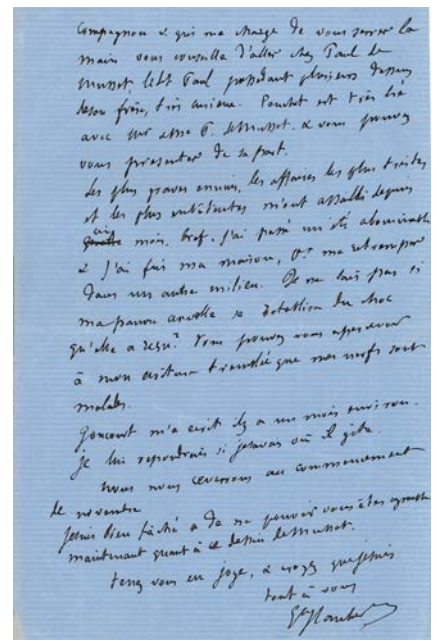 Compagnon & qui me charge de vous serrer la
main vous conseille d'aller chez Paul de
Musset, ledit Paul possédant plusieurs dessins
de son frère, très curieux. Pouchet est très lié
avec P. de Musset. & vous pouvez
vous présenter de sa part.
Les plus graves ennuis, les affaires les plus tristes
et les plus m'ont assailli depuis
mois, bref. j'ai passé un été abominable
& j'ai fui ma maison, pr me retremper
dans un autre milieu. Je ne sais pas si
ma pauvre cervelle se rétablira du choc
qu'elle a reçu? Vous pouvez vous apercevoir
à mon écriture tremblée que mes nerfs sont
malades.
Goncourt m'a écrit il y a un mois environ.
je lui répondrais si je savais où il gîte.
nous nous reverrons au commencement
de novembre
Je suis bien fâché de ne pouvoir vous être agréable
maintenant quant à ce dessin de Musset.
tenez vous en joye, & croyez que je suis
tout à vous
Gve Flaubert